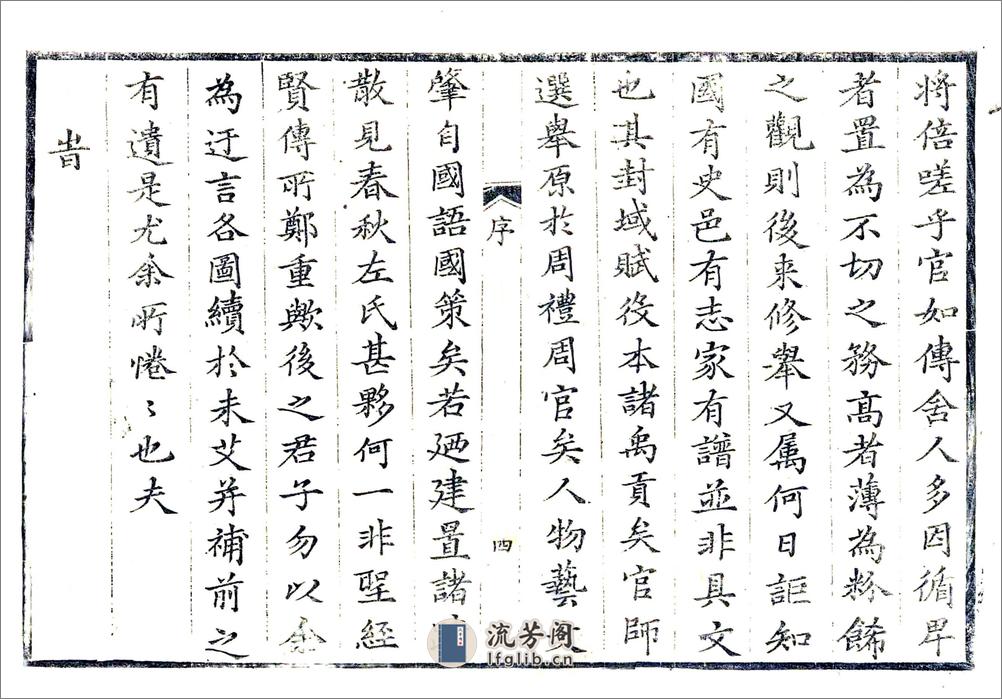 將倍嗟乎官如傳舍人多因循卑
者置為不切之務高者薄為粉餙
之觀則後来修舉又属何日詎知
國有史邑有志家有譜並非具文
也其封域賦役本諸禹貢矣官師
選舉原於周禮周官矣人物藝
序
四
肇自國語國策矣若廼建置諸
散見春秋左氏甚夥何一非聖經
賢傳所鄭重歟後之君子勿以余
為迂言各圖續於未艾并補前之
有遺是尤余所惓〻也夫
旹
流芳阁
lfglib.cn